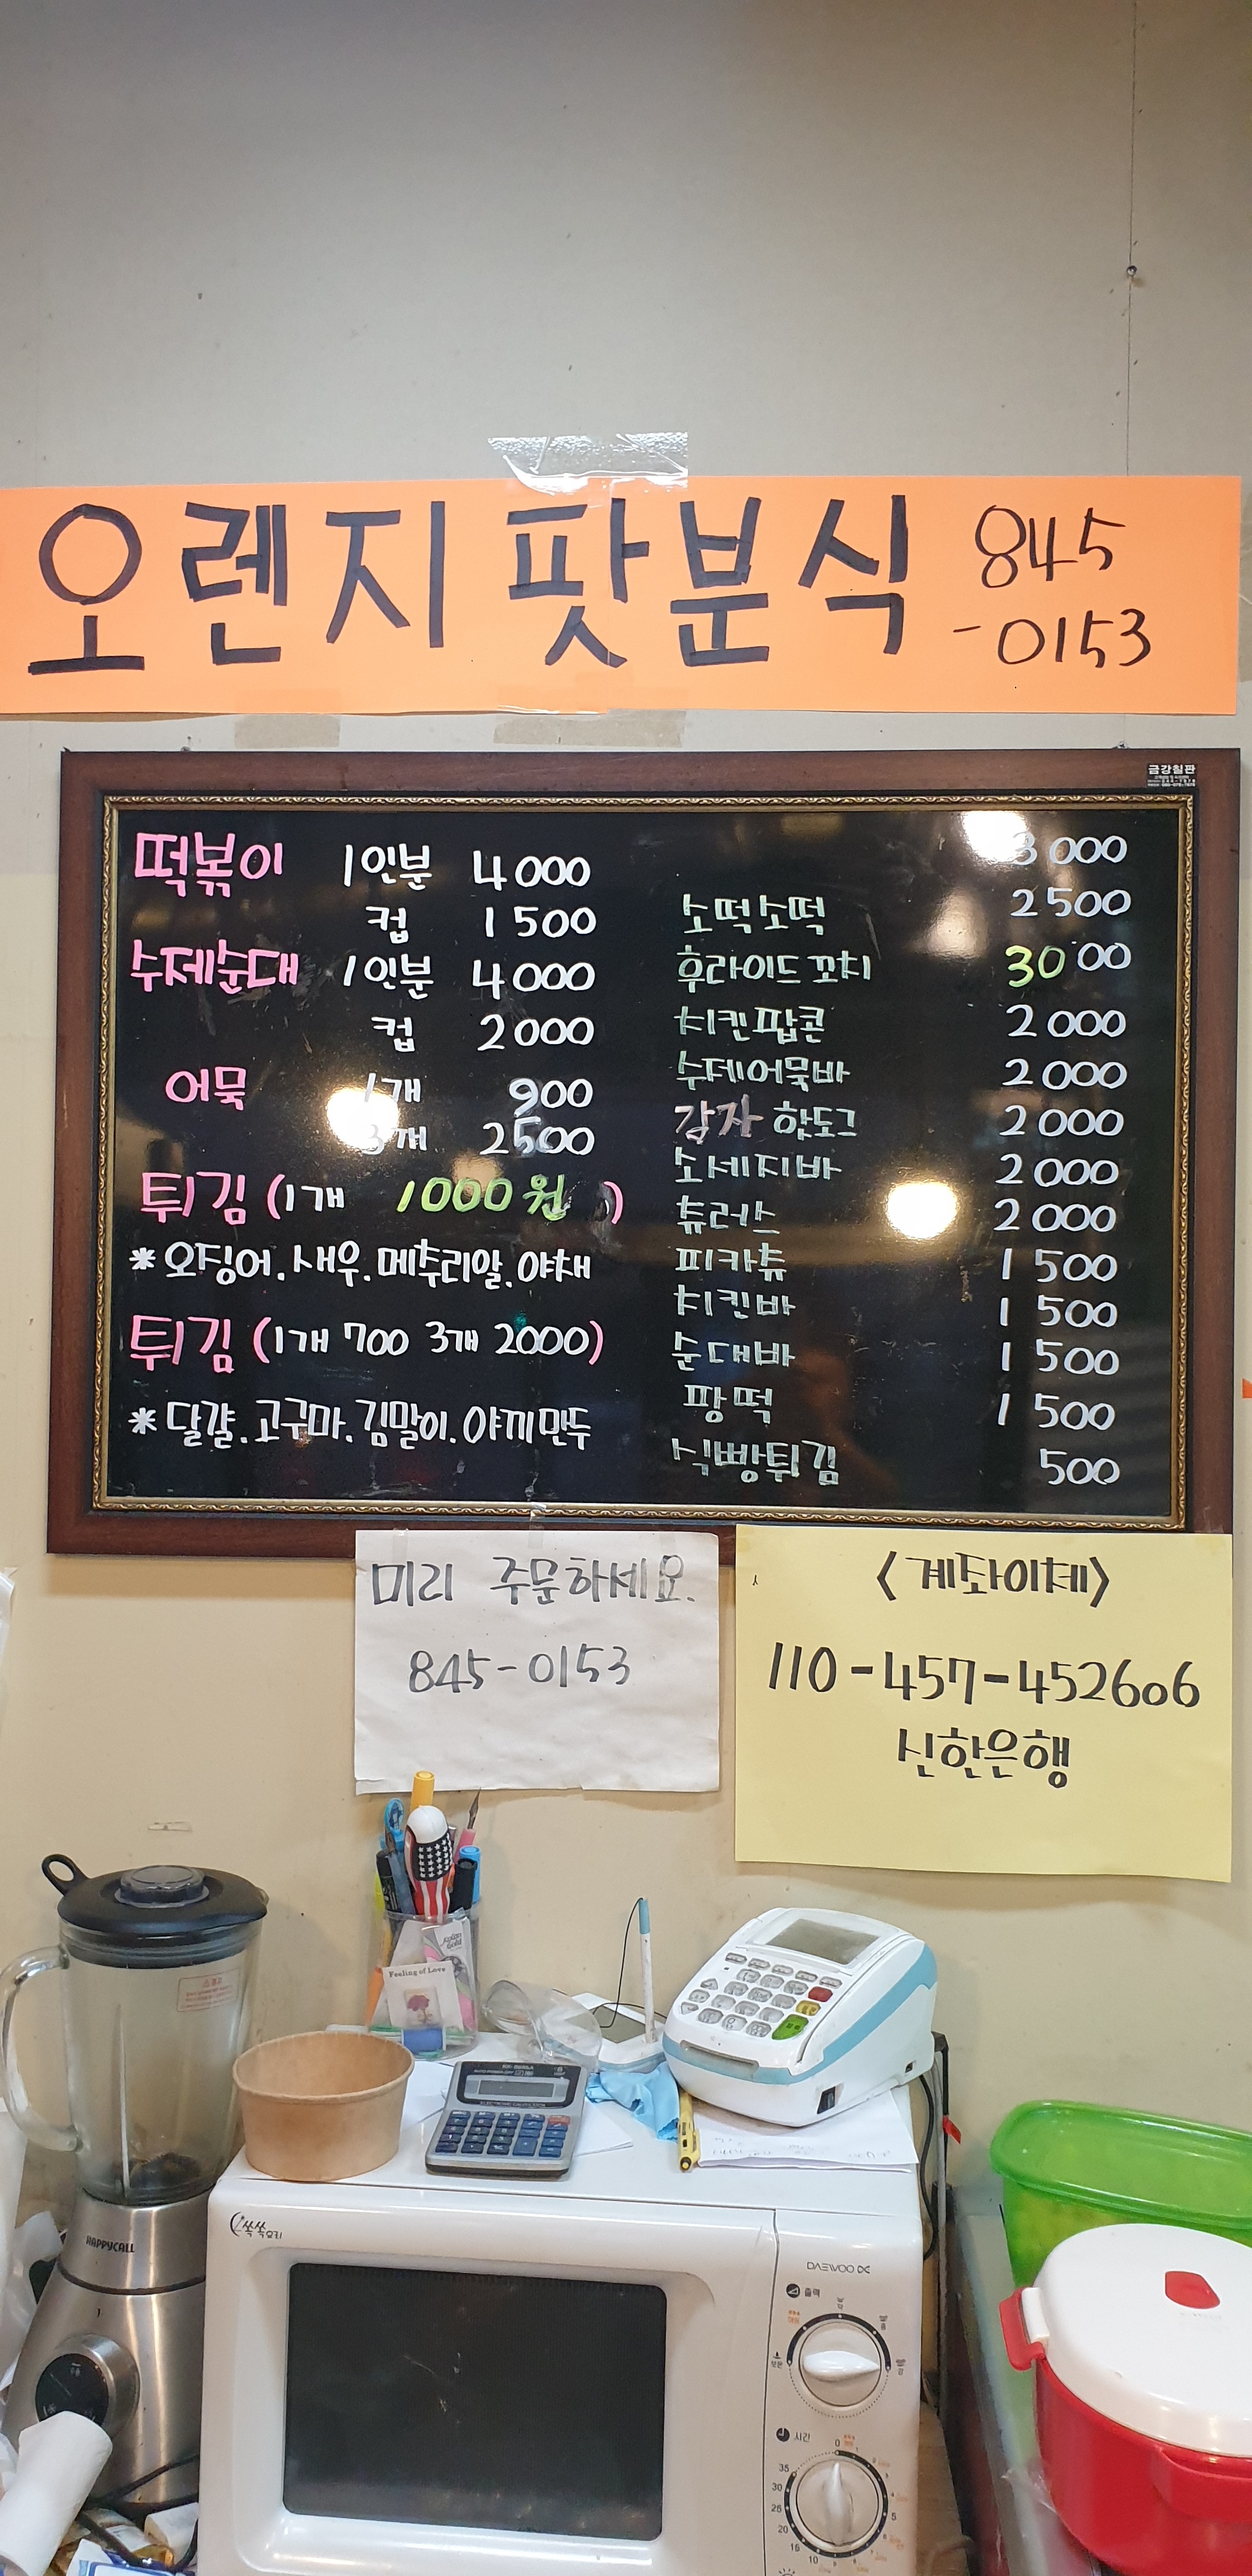 오렌지 팟분식 845
-0153
금강칠판
떡볶이 1인분 4000
컵 1500
수제순대 1인분 4000
컵 2000
어묵 1개 900
3개 2500
튀김 (1개 1000원 )
* 오징어. 새우. 메추리알. 야채
튀김 (1개 700 3개 2000)
* 달걀. 고구마. 김말이. 야끼만두
3000
소떡소떡 2500
후라이드 꼬치 3000
치킨팝콘 2000
수제어묵바 2000
감자 핫도그 2000
소세지바 2000
츄러스 2000
피카츄 1500
치킨바 1500
순대바 1500
팡떡 1500
식빵튀김 500
미리 주문하세요.
845-0153
<계좌이체>
110-457-452606
신한은행
Feeling of Love
HAPPYCALL
쏙쏙요리
DAEWOO
출력
시간
0
35
30
25
20
15
10
5